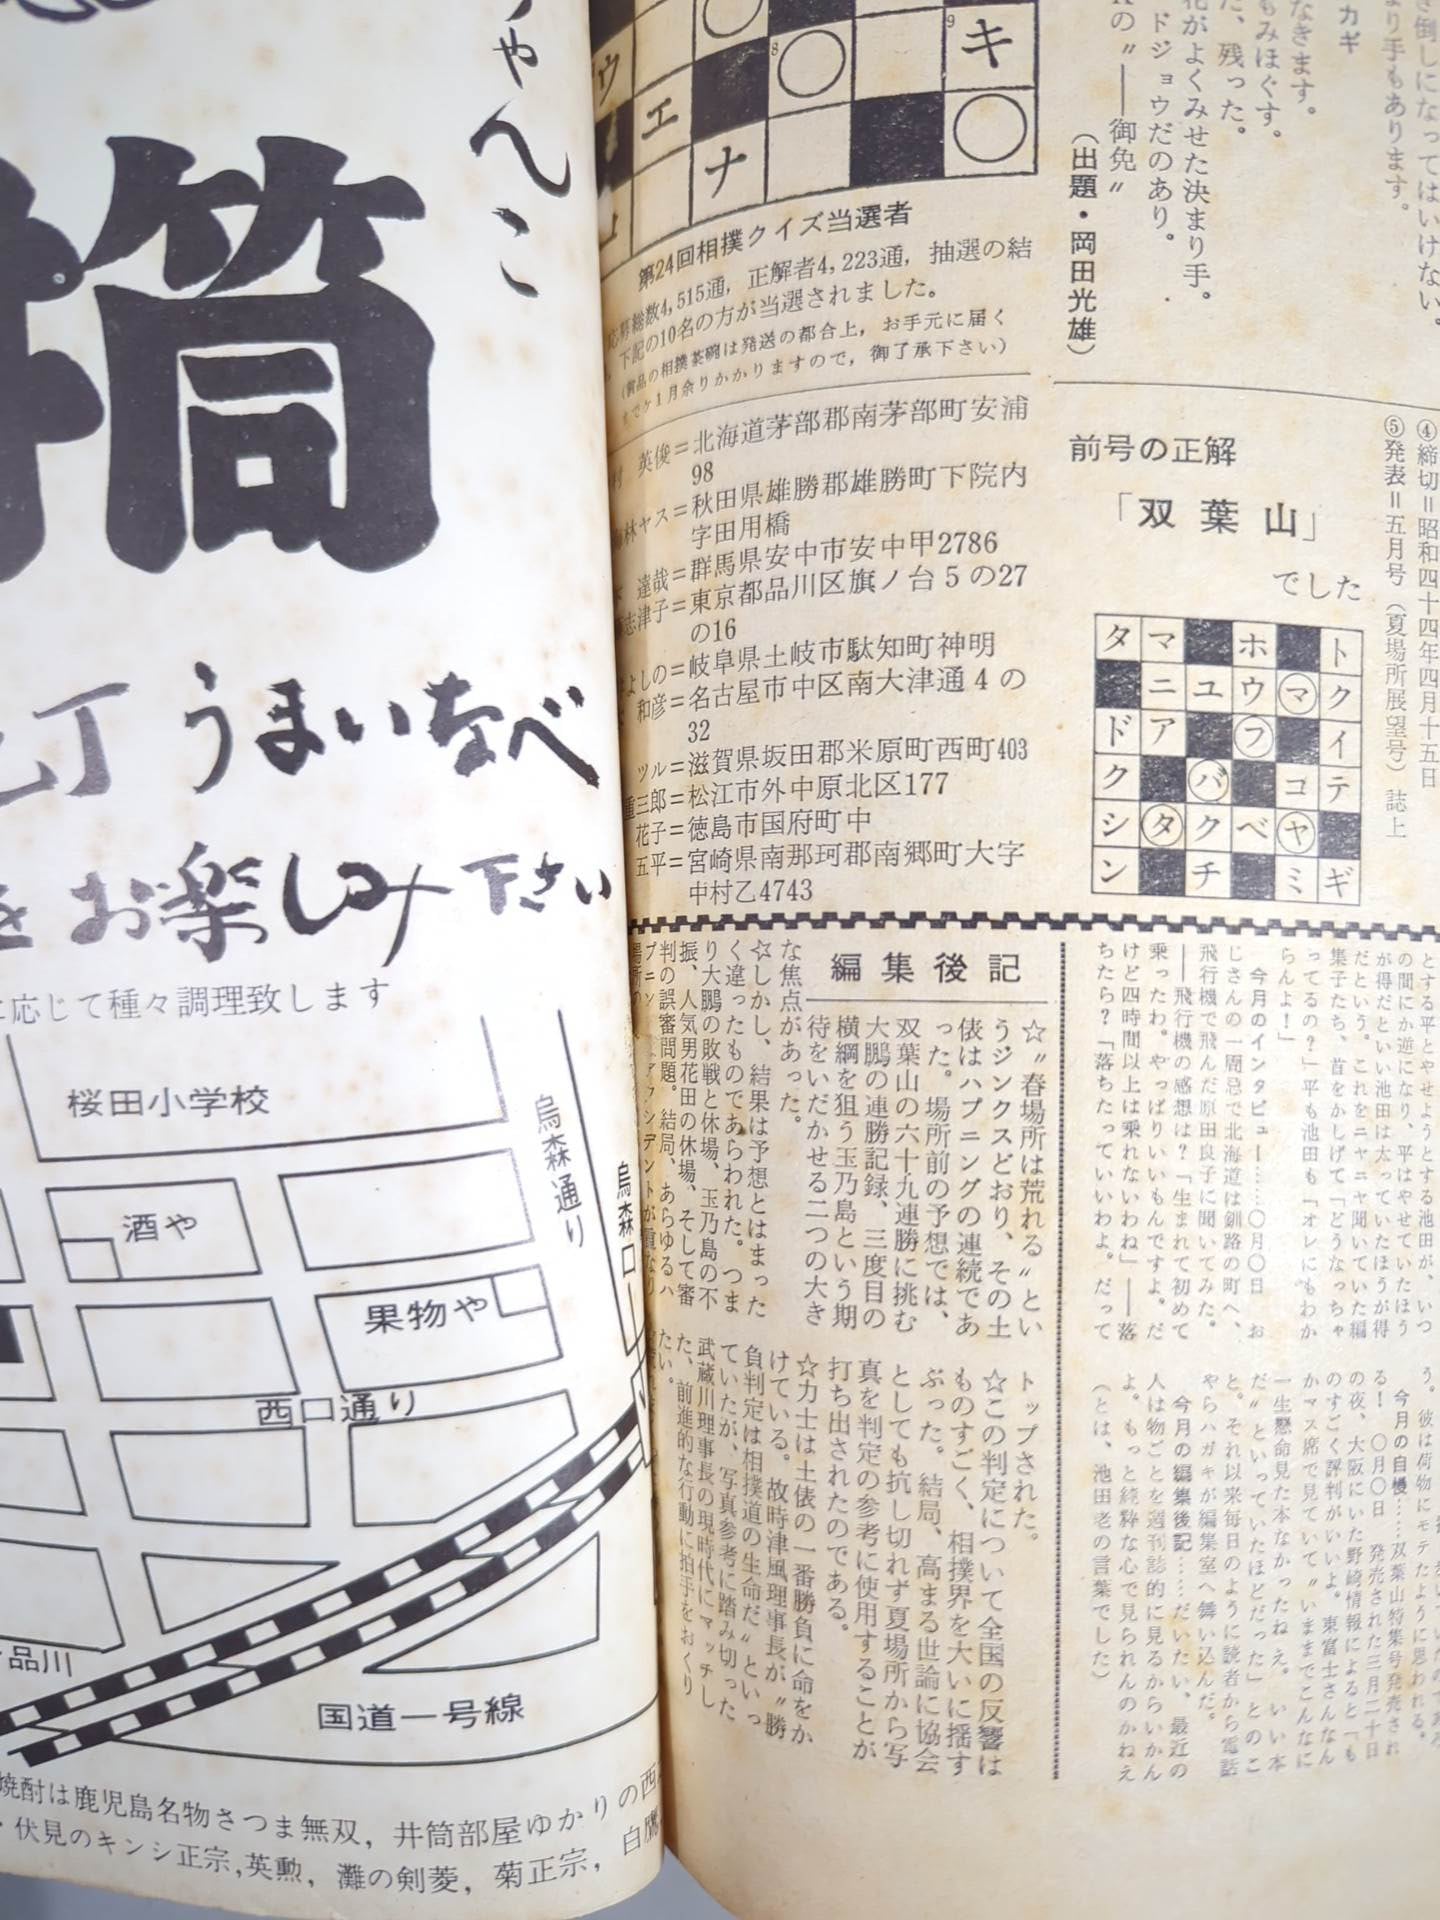 ちゃんこ
筒
うまいなべ
をお楽しみ下さい
に応じて種々調理致します
桜田小学校
烏森通り
烏森口
酒や
果物や
西口通り
品川
国道一号線
焼酎は鹿児島名物さつま無双，井筒部屋ゆかりの西
・伏見のキンシ正宗,英勲，灘の剣菱，菊正宗，白鷹
き倒しになってはいけない。
り手もあります。
カギ
なきます。
もみほぐす。
た、残った。
花がよくみせた決まり手。
ドジョウだのあり。
の〝――御免〟
（出題・岡田光雄）
8
9
キ
ウ
エ
ナ
第24回相撲クイズ当選者
応募総数4,515通，正解者4,223通，抽選の結
，下記の10名の方が当選されました。
（賞品の相撲茶碗は発送の都合上，お手元に届く
までヶ1月余りかかりますので，御了承下さい）
村　英俊＝北海道茅部郡南茅部町安浦
98
林ヤス＝秋田県雄勝郡雄勝町下院内
字田用橋
達哉＝群馬県安中市安中甲2786
志津子＝東京都品川区旗ノ台5の27
の16
よしの＝岐阜県土岐市駄知町神明
和彦＝名古屋市中区南大津通4の
32
ツル＝滋賀県坂田郡米原町西町403
重三郎＝松江市外中原北区177
花子＝徳島市国府町中
五平＝宮崎県南那珂郡南郷町大字
中村乙4743
④締切＝昭和四十四年四月十五日
⑤発表＝五月号（夏場所展望号）誌上
前号の正解
「双葉山」
でした
タマ　ホ　ト
　ニユウマク
ドア　フ　イ
ク　バ　コテ
シタクベヤ
ン　チ　ミギ
とする平とやせようとする池田が、いつ
の間にか逆になり、平はやせていたほう
が得だといい池田は太っていたほうが得
だという。これをニヤニヤ聞いていた編
集子たち、首をかしげて「どうなっちゃ
ってるの？」平も池田も「オレにもわか
らんよ！」
今月のインタビュー……〇月〇日　お
じさんの一周忌で北海道は釧路の町へ、
飛行機で飛んだ原田良子に聞いてみた。
――飛行機の感想は？「生まれて初めて
乗ったわ。やっぱりいいもんですよ。だ
けど四時間以上は乗れないわね」――落
ちたら？「落ちたっていいわよ。だって
う。彼は荷物にモテたように思われる。
今月の自慢……双葉山特集号発売され
る！　〇月〇日　発売された三月二十日
の夜、大阪にいた野崎情報によると「も
のすごく評判がいいよ。東富士さんなん
かマス席で見ていて〝いままでこんなに
一生懸命見た本なかったねえ。いい本
だ〟といっていたほどだった」とのこ
と。それ以来毎日のように読者から電話
やらハガキが編集室へ舞い込んだ。
今月の編集後記……だいたい、最近の
人は物ごとを週刊誌的に見るからいかん
よ。もっと純粋な心で見られんのかねえ
（とは、池田老の言葉でした）
編集後記
☆〝春場所は荒れる〟とい
うジンクスどおり、その土
俵はハプニングの連続であ
った。場所前の予想では、
双葉山の六十九連勝に挑む
大鵬の連勝記録、三度目の
横綱を狙う玉乃島という期
待をいだかせる二つの大き
な焦点があった。
☆しかし、結果は予想とはまった
く違ったものであらわれた。つま
り大鵬の敗戦と休場、玉乃島の不
振、人気男花田の休場、そして審
判の誤審問題。結局、あらゆるハ
トップされた。
☆この判定について全国の反響は
ものすごく、相撲界を大いに揺す
ぶった。結局、高まる世論に協会
としても抗し切れず夏場所から写
真を判定の参考に使用することが
打ち出されたのである。
☆力士は土俵の一番勝負に命をか
けている。故時津風理事長が〝勝
負判定は相撲道の生命だ〟といっ
ていたが、写真参考に踏み切った
武蔵川理事長の現時代にマッチし
た、前進的な行動に拍手をおくり
たい。